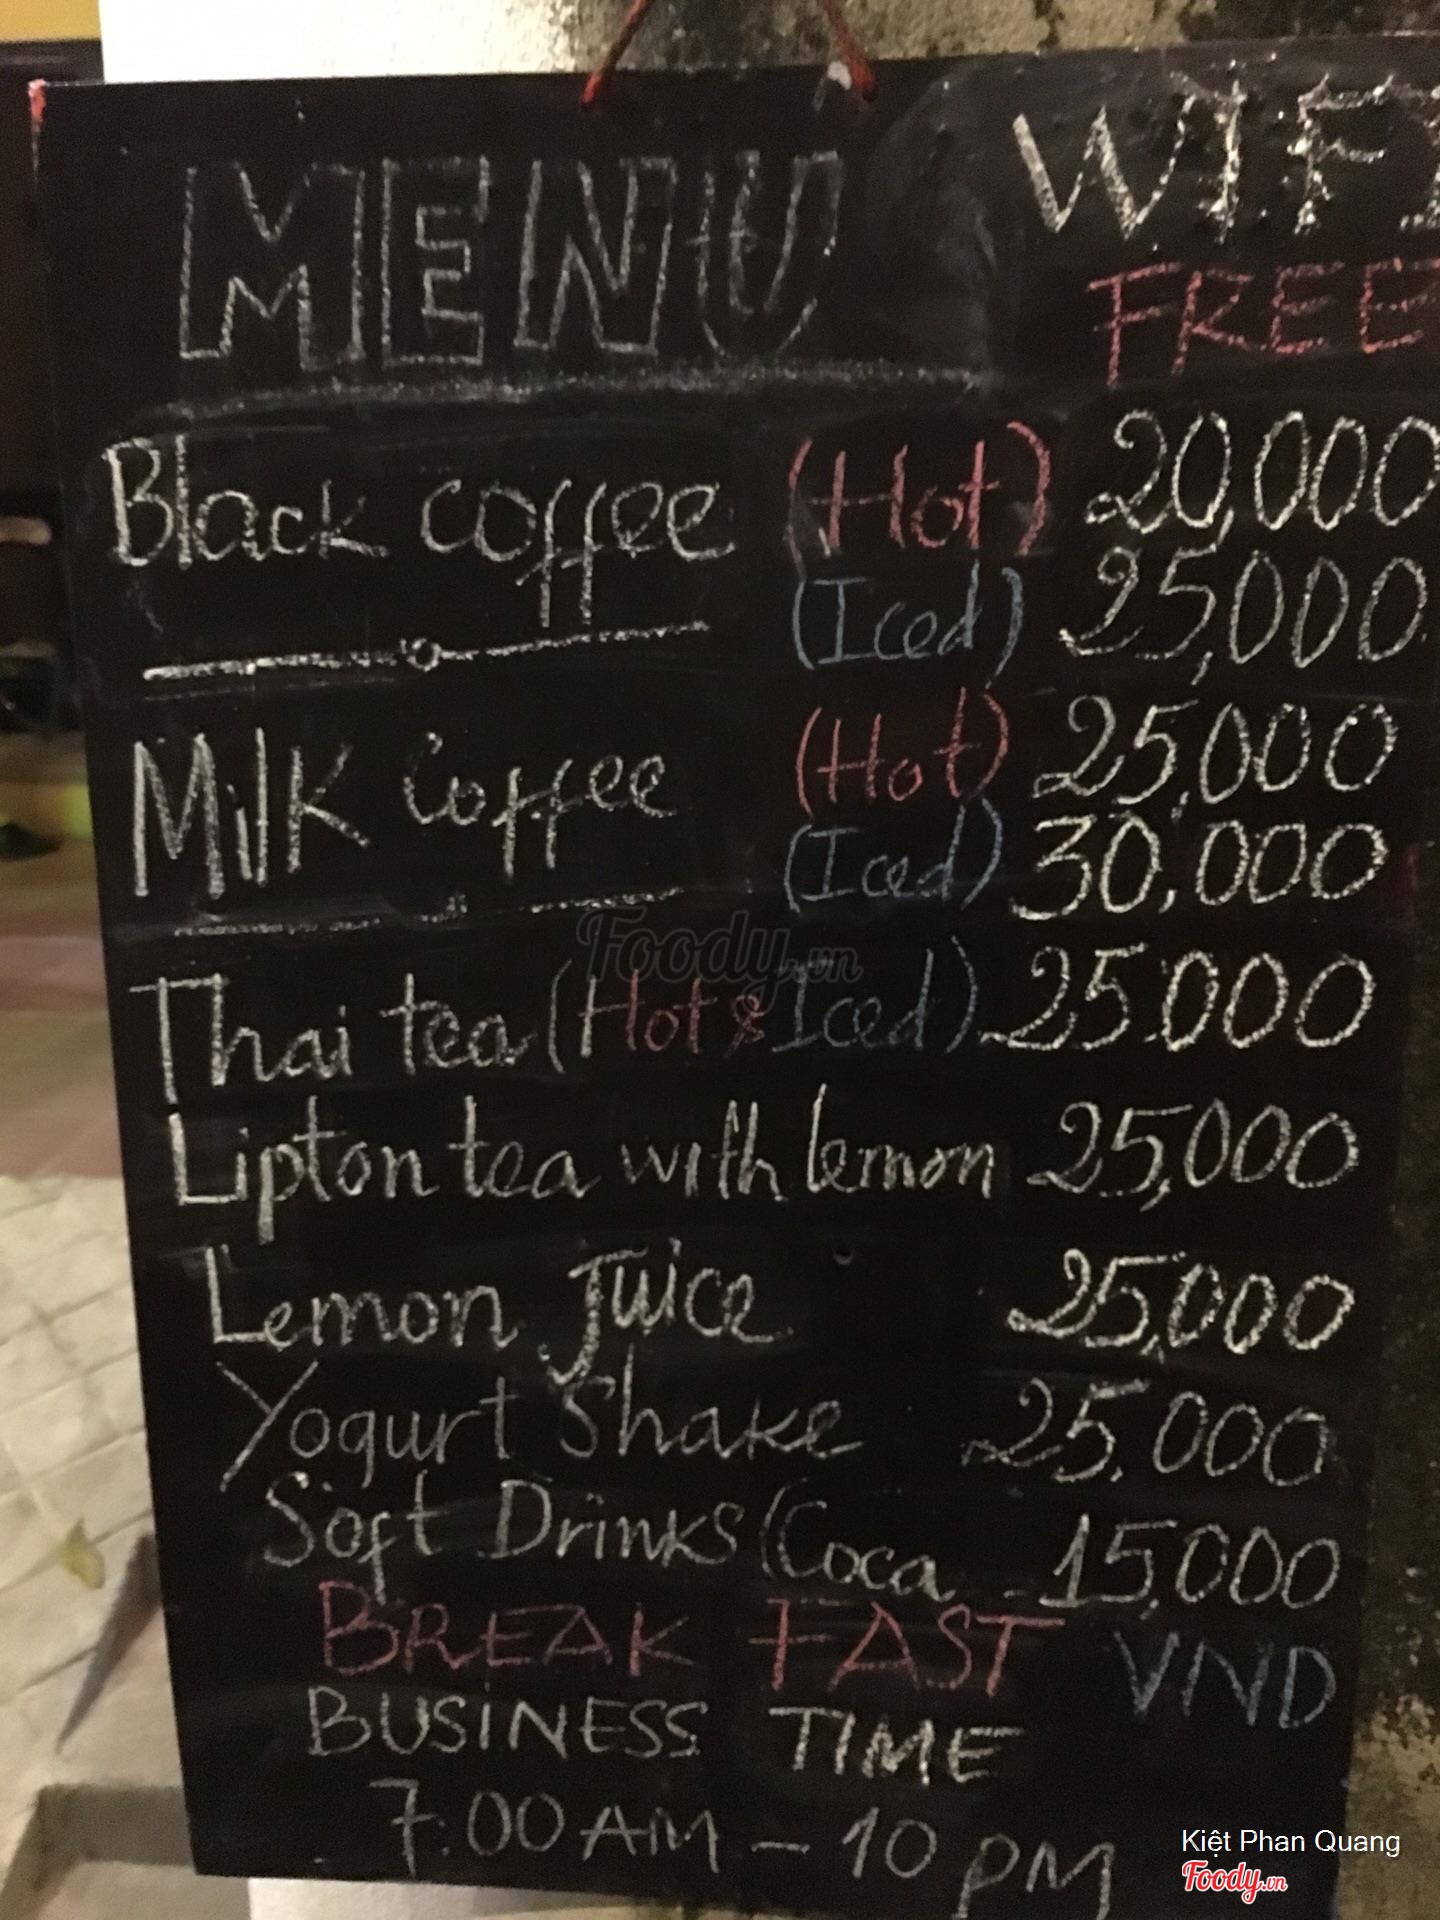 MENU WIFI
FREE
Black coffee (Hot) 20,000
(Iced) 25,000
Milk Coffee (Hot) 25,000
(Iced) 30,000
Foody.vn
Thai tea (Hot & Iced) 25.000
Lipton tea with lemon 25,000
Lemon Juice 25,000
Yogurt Shake 25.000
Soft Drinks (Coca 15,000
BREAK FAST VND
BUSINESS TIME
7.00 AM - 10 PM
Kiệt Phan Quang
Foody.vn